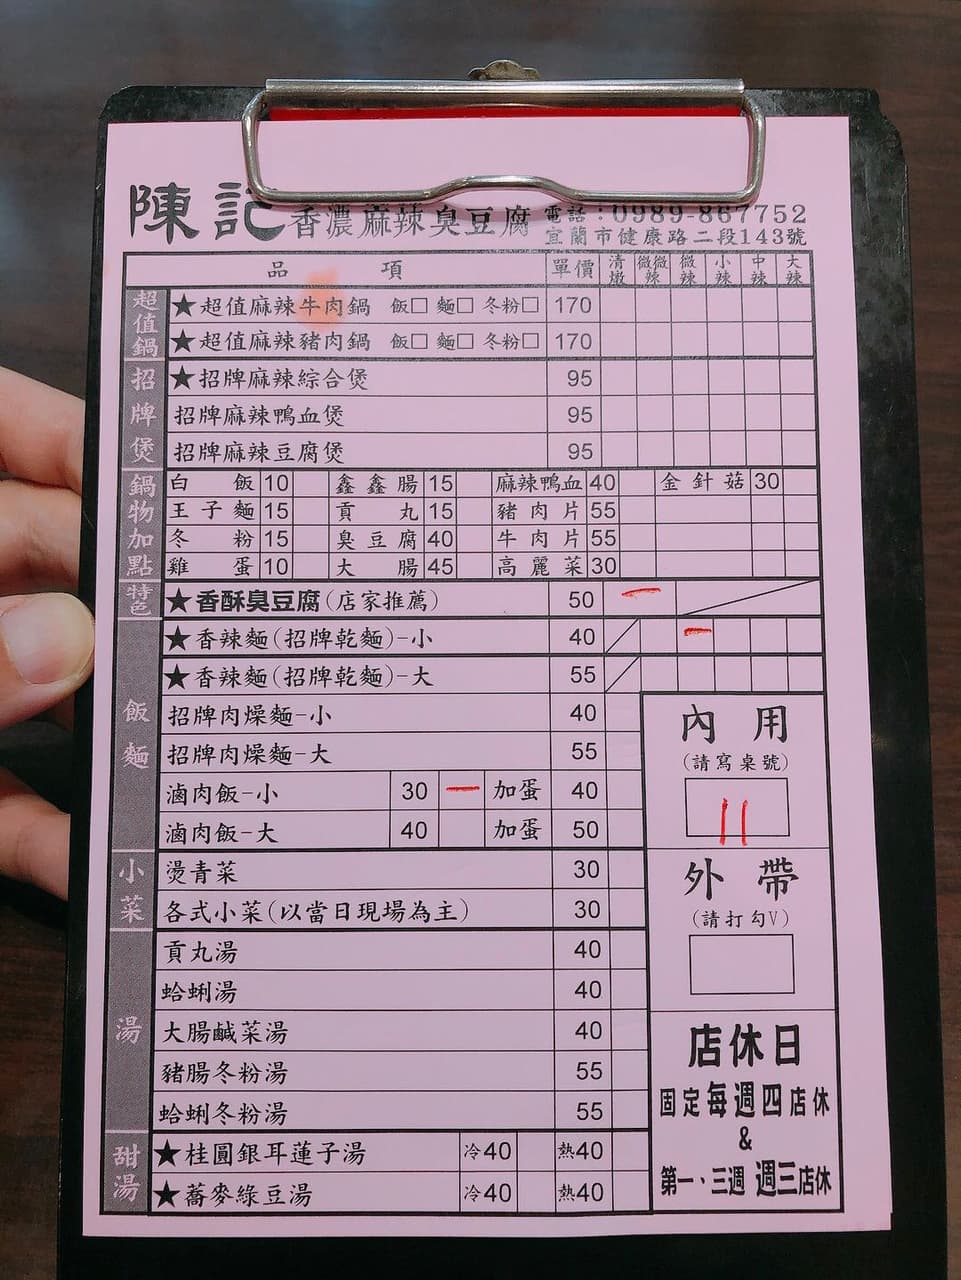 陳記 香濃麻辣臭豆腐 電話:0989-867752
宜蘭市健康路二段143號
品 項 單價 清燉 微微辣 微辣 小辣 中辣 大辣
超值鍋
★超值麻辣牛肉鍋 飯□ 麵□ 冬粉□ 170
★超值麻辣豬肉鍋 飯□ 麵□ 冬粉□ 170
招牌煲
★招牌麻辣綜合煲 95
招牌麻辣鴨血煲 95
招牌麻辣豆腐煲 95
鍋物加點
白飯 10 鑫鑫腸 15 麻辣鴨血 40 金針菇 30
王子麵 15 貢丸 15 豬肉片 55
冬粉 15 臭豆腐 40 牛肉片 55
雞蛋 10 大腸 45 高麗菜 30
特色
★香酥臭豆腐(店家推薦) 50 一
飯麵
★香辣麵(招牌乾麵)-小 40 一
★香辣麵(招牌乾麵)-大 55
招牌肉燥麵-小 40
招牌肉燥麵-大 55
滷肉飯-小 30 一 加蛋 40
滷肉飯-大 40 加蛋 50
小菜
燙青菜 30
各式小菜(以當日現場為主) 30
湯
貢丸湯 40
蛤蜊湯 40
大腸鹹菜湯 40
豬腸冬粉湯 55
蛤蜊冬粉湯 55
甜湯
★桂圓銀耳蓮子湯 冷40 熱40
★蕎麥綠豆湯 冷40 熱40
內用
(請寫桌號)
11
外帶
(請打勾V)
店休日
固定每週四店休
&
第一、三週 週三店休